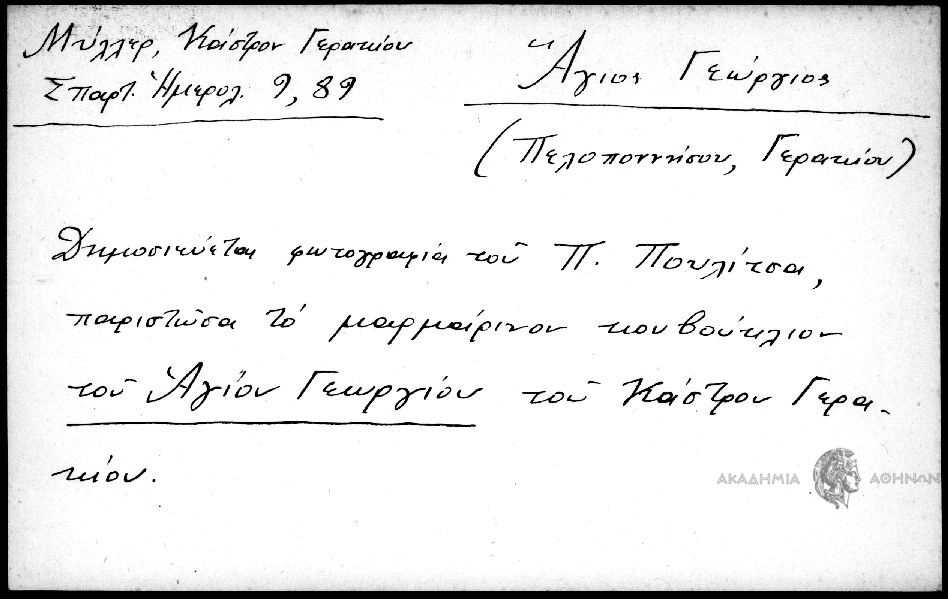 Μύλλερ, Κάστρον Γερακίου
Σπαρτ. Ἡμερολ. 9, 89
Ἅγιος Γεώργιος
(Πελοποννήσου, Γερακίου)
Δημοσιεύεται φωτογραφία τοῦ Π. Πουλίτσα,
παριστῶσα τό μαρμάρινον κουβούκλιον
τοῦ Ἁγίου Γεωργίου τοῦ Κάστρου Γερα-
κίου.
ΑΚΑΔΗΜΙΑ ΑΘΗΝΩΝ